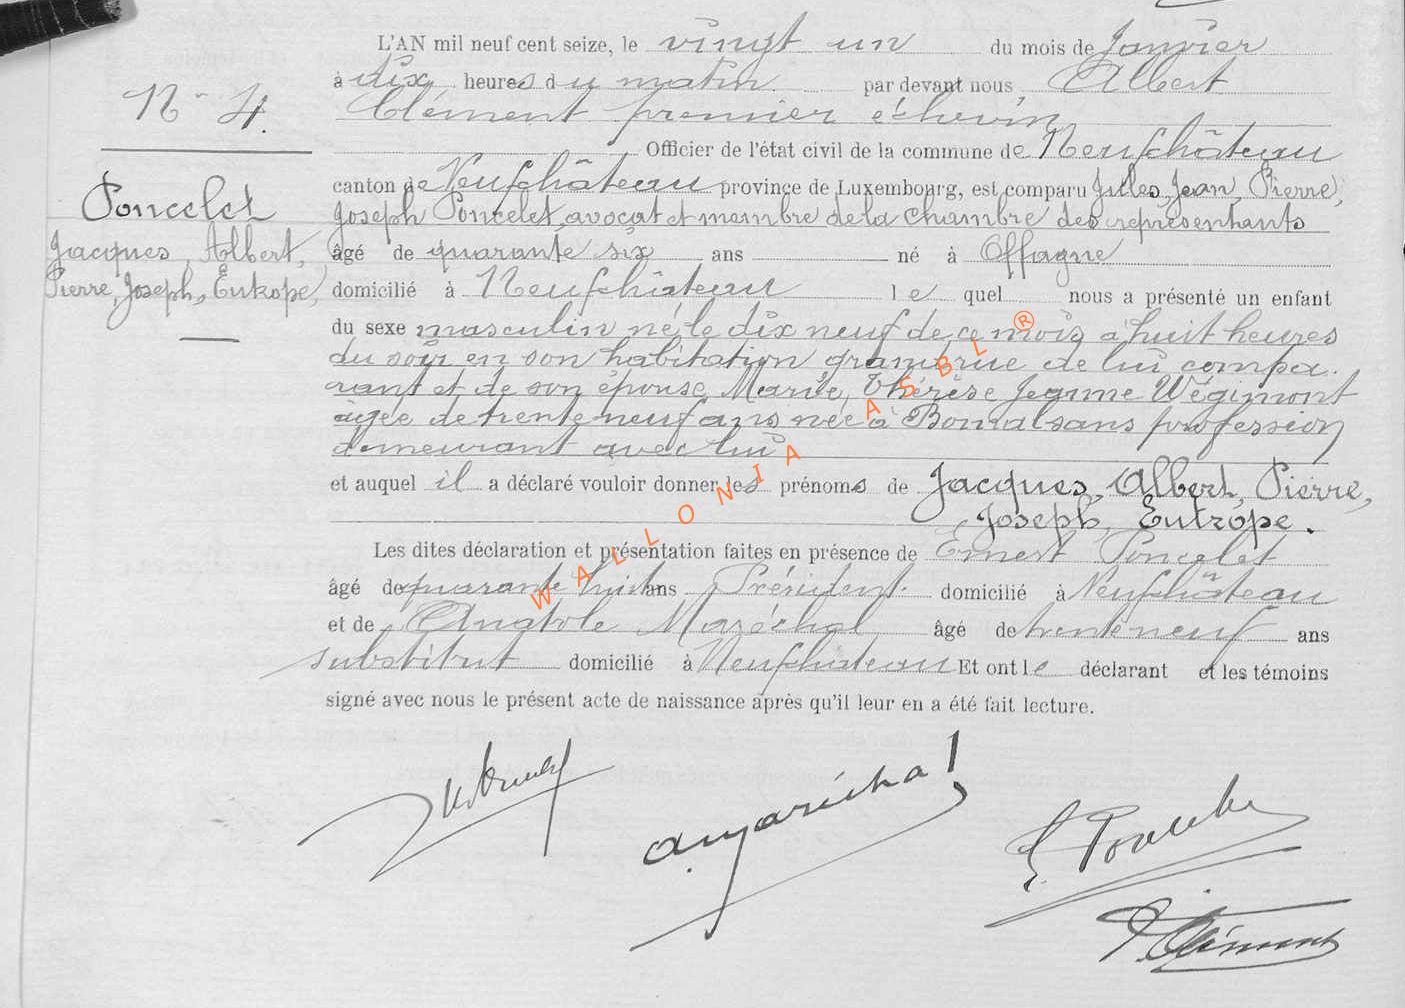 L'AN mil neuf cent seize, le vingt un du mois de Janvier
à dix heures du matin par devant nous Albert
Clément premier échevin
Officier de l'état civil de la commune de Neufchâteau
canton de Neufchâteau province de Luxembourg, est comparu Jules, Jean, Pierre,
Joseph Poncelet, avocat et membre de la chambre des représentants
âgé de quarante six ans né à Offagne
domicilié à Neufchâteau lequel nous a présenté un enfant
du sexe masculin né le dix neuf de ce mois à huit heures
du soir en son habitation grand'rue de lui compa-
rant et de son épouse Marie, Thérèse Jeanne Wégimont
âgée de trente neuf ans née à Bomal sans profession
demeurant avec lui
et auquel il a déclaré vouloir donner les prénoms de Jacques, Albert, Pierre,
Joseph, Eutrope.
Les dites déclaration et présentation faites en présence de Ernest Poncelet
âgé de quarante huit ans Président domicilié à Neufchâteau
et de Anatole Maréchal âgé de trente neuf ans
substitut domicilié à Neufchâteau Et ont le déclarant et les témoins
signé avec nous le présent acte de naissance après qu'il leur en a été fait lecture.
N° 4.
Poncelet
Jacques, Albert,
Pierre, Joseph, Eutrope,
WALLONIA ASBL ®
a. maréchal
E. Poncelet
Clément